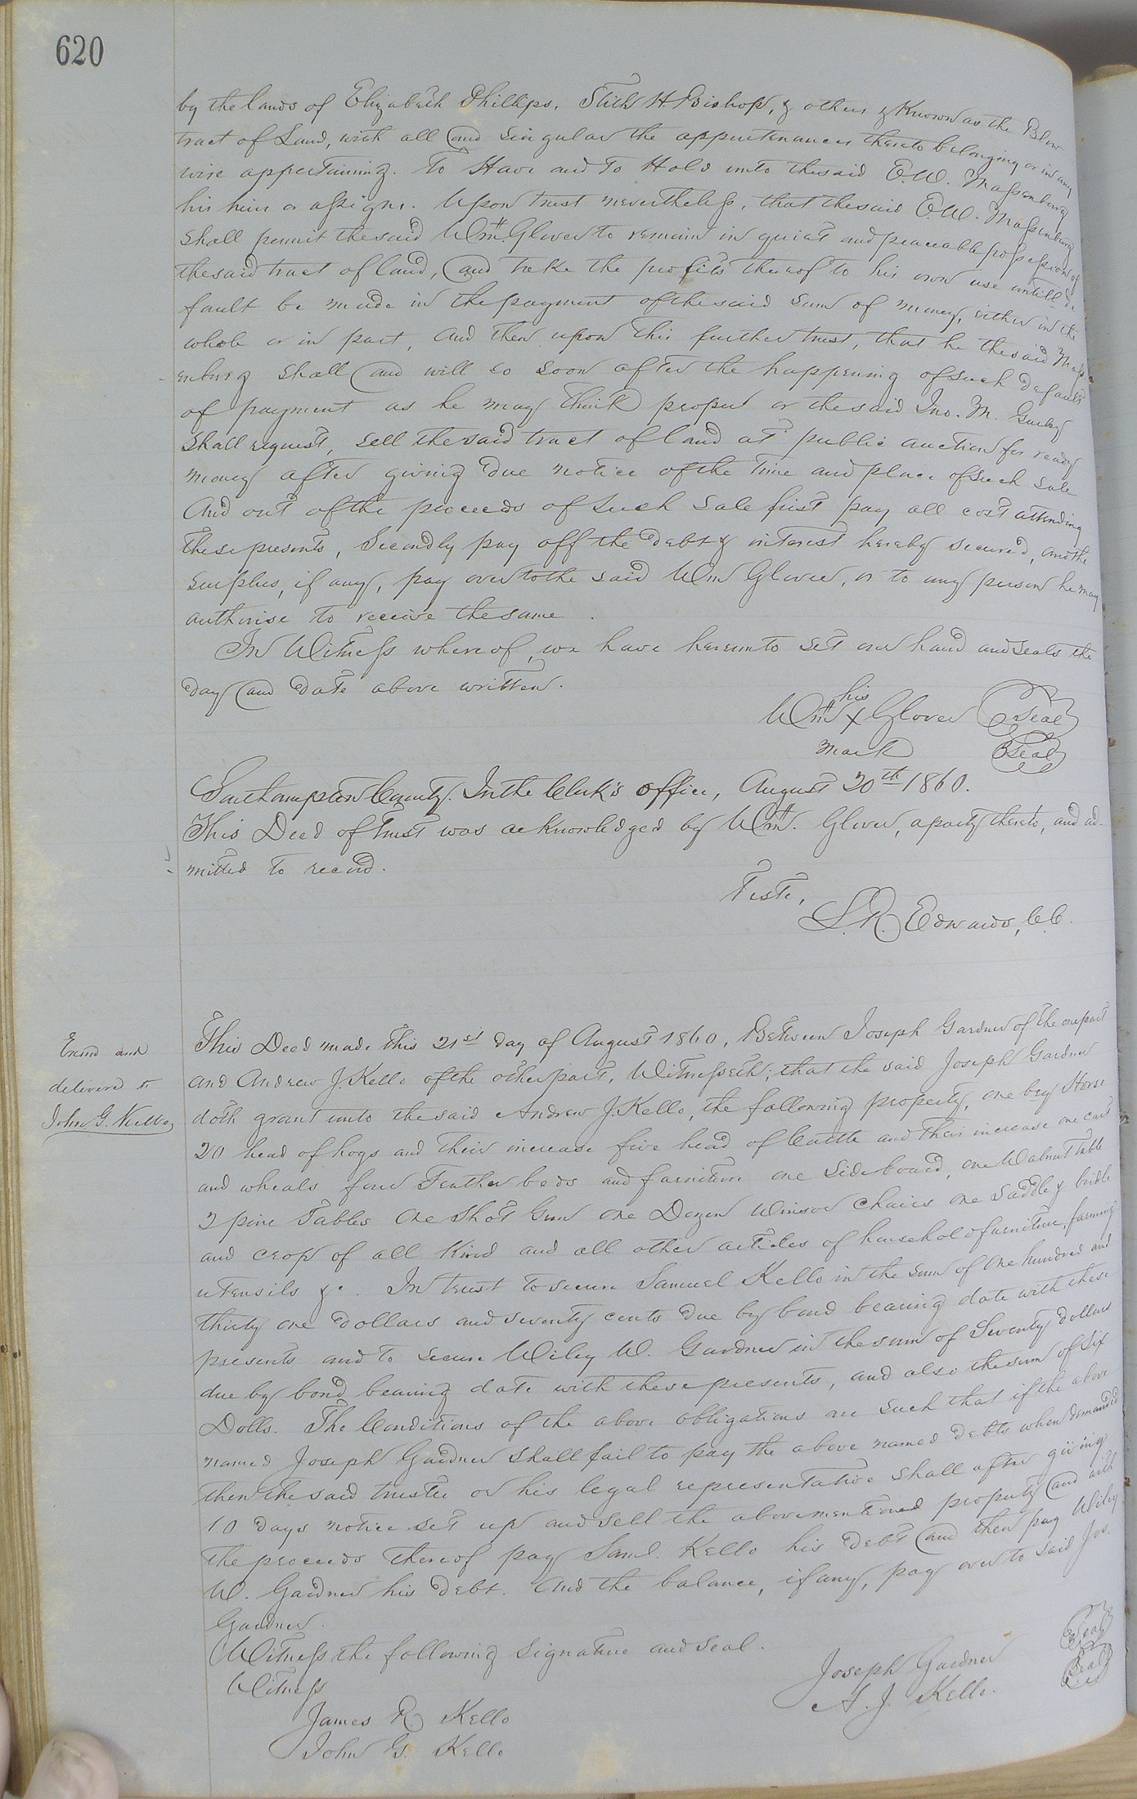 620
by the lands of Elizabeth Phillips, H Bishop, & others & Known as the Blow
tract of Land, with all and singular the appurtenances thereto belonging or in any
wise appertaining. To Have and To Hold unto the said E.W. Massenburg
his heirs or assigns. Upon trust nevertheless, that the said E.W. Massenburg
shall permit the said Wm. Glover to remain in quiet and peaceable possession of
the said tract of land, and take the profits thereof to his own use untill de
fault be made in the payment of the said sum of money, either in the
whole or in part, and then upon this further trust, that he the said Mass
enburg shall and will so soon after the happening of such default
of payment as he may think proper or the said Jno. M. Gurley
shall request, sell the said tract of land at public auction for ready
money after giving due notice of the time and place of such sale
And out of the proceeds of such sale first pay all cost attending
these presents, Secondly pay off the debt & interest hereby secured, and the
surplus, if any, pay over to the said Wm Glover, or to any person he may
authorise to receive the same.
In Witness whereof, we have hereunto set our hand and seals the
day and date above written.
his
Wm X Glover Seal
mark Seal
Southampton County. In the Clerk's office, August 20th 1860.
This Deed of trust was acknowledged by Wm. Glover, a party thereto, and ad-
mitted to record.
Teste,
L. R. Edwards, C.C.
Exmd and
delivered to
John G. Kello
This Deed made this 21st day of August 1860, Between Joseph Gardner of the one part
and Andrew J. Kello of the other part, Witnesseth; that the said Joseph Gardner
doth grant unto the said Andrew J. Kello, the following property, one bay Horse
20 head of hogs and their increase five head of Cattle and their increase one cart
and wheals four Feather beds and furniture one Side board, one Walnut Table
2 pine Tables one Shot Gun one Dozen Winsor Chairs one Saddle & bridle
and crop of all Kind and all other articles of household furniture, farming
utensils &c. In trust to secure Samuel Kello in the sum of one hundred and
thirty one dollars and seventy cents due by bond bearing date with these
presents and to secure Wiley W. Gardner in the sum of Seventy dollars
due by bond bearing date with these presents, and also the sum of Six
Dolls. The Conditions of the above obligations are such that if the above
named Joseph Gardner shall fail to pay the above named debts when demanded
then the said trustee or his legal representative shall after giving
10 days notice set up and sell the above mentioned property and with
the proceeds thereof pay Saml. Kello his debt and then pay Wiley
W. Gardner his debt. And the balance, if any, pay over to said Jos.
Gardner.
Witness the following signature and seal.
Witness
Joseph Gardner Seal
A. J. Kello. Seal
James R Kello
John G. Kello